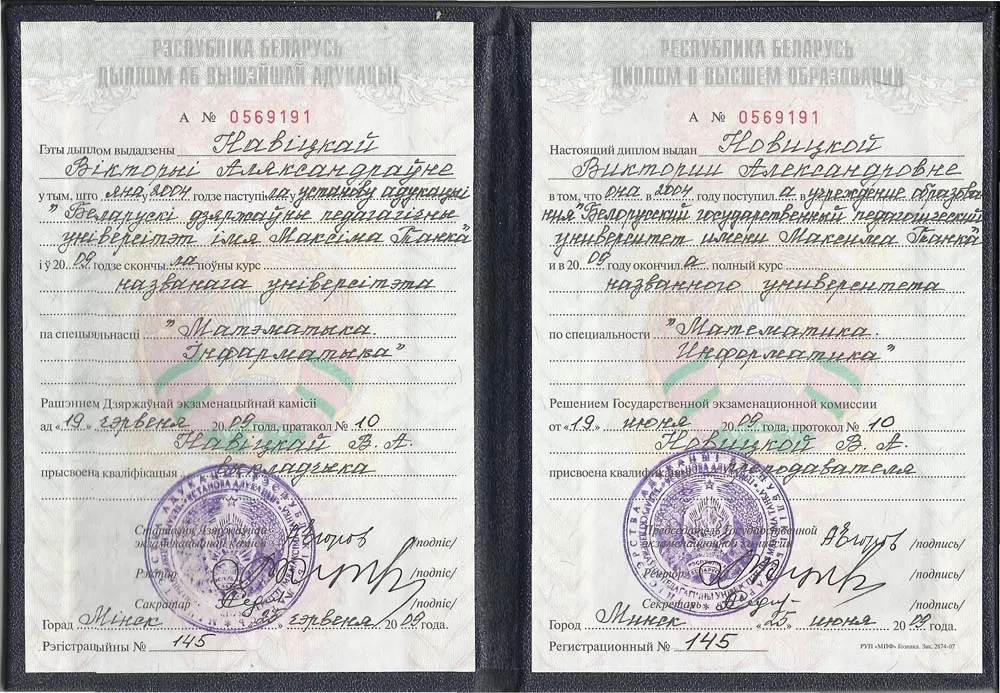 РЭСПУБЛІКА БЕЛАРУСЬ
ДЫПЛОМ АБ ВЫШЭЙШАЙ АДУКАЦЫІ
А № 0569191
Гэты дыплом выдадзены Навіцкай
Вікторыі Аляксандраўне
у тым, што яна ў 2004 годзе паступіла ва установу адукацыі
"Беларускі дзяржаўны педагагічны
універсітэт імя Максіма Танка"
і ў 2009 годзе скончыла поўны курс
названага універсітэта
па спецыяльнасці "Матэматыка.
Інфарматыка"
Рашэннем Дзяржаўнай экзаменацыйнай камісіі
ад «19» чэрвеня 2009 года, пратакол № 10
Навіцкай В. А.
прысвоена кваліфікацыя выкладчыка
Старшыня Дзяржаўнай
экзаменацыйнай камісіі /подпіс/
Рэктар /подпіс/
Сакратар /подпіс/
Горад Мінск «25» чэрвеня 2009 года.
Рэгістрацыйны № 145
РЕСПУБЛИКА БЕЛАРУСЬ
ДИПЛОМ О ВЫСШЕМ ОБРАЗОВАНИИ
А № 0569191
Настоящий диплом выдан Новицкой
Виктории Александровне
в том, что она в 2004 году поступила в учреждение образова-
ния "Белорусский государственный педагогический
университет имени Максима Танка"
и в 2009 году окончила полный курс
названного университета
по специальности "Математика.
Информатика"
Решением Государственной экзаменационной комиссии
от «19» июня 2009 года, протокол № 10
Новицкой В. А.
присвоена квалификация преподавателя
Председатель Государственной
экзаменационной комиссии /подпись/
Ректор /подпись/
Секретарь /подпись/
Город Минск «25» июня 2009 года.
Регистрационный № 145
РУП «МПФ» Гознака. Зак. 2874-07